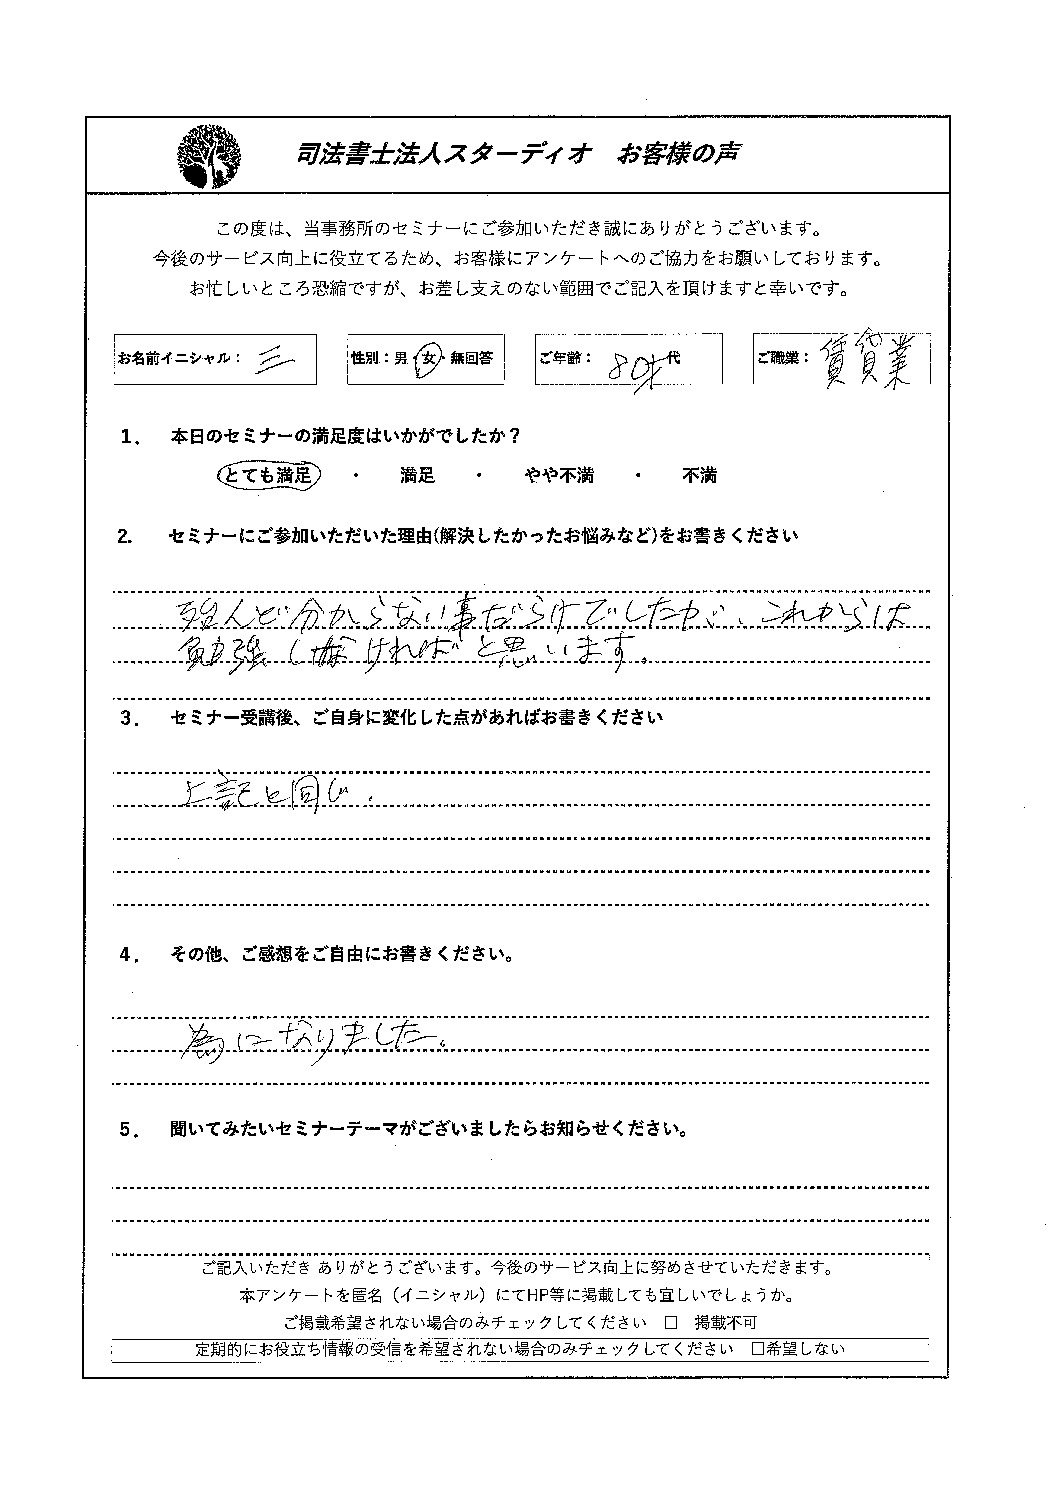 司法書士法人スターディオ　お客様の声
この度は、当事務所のセミナーにご参加いただき誠にありがとうございます。
今後のサービス向上に役立てるため、お客様にアンケートへのご協力をお願いしております。
お忙しいところ恐縮ですが、お差し支えのない範囲でご記入を頂けますと幸いです。
お名前イニシャル： 三　性別：男・女・無回答　ご年齢： 80才代　ご職業： 賃貸業
1.　本日のセミナーの満足度はいかがでしたか？
とても満足　・　満足　・　やや不満　・　不満
2.　セミナーにご参加いただいた理由(解決したかったお悩みなど)をお書きください
殆んど分からない事だらけでしたが、これからは
勉強しなければと思います。
3.　セミナー受講後、ご自身に変化した点があればお書きください
上記と同じ.
4.　その他、ご感想をご自由にお書きください。
為になりました。
5.　聞いてみたいセミナーテーマがございましたらお知らせください。
ご記入いただき ありがとうございます。今後のサービス向上に努めさせていただきます。
本アンケートを匿名（イニシャル）にてHP等に掲載しても宜しいでしょうか。
ご掲載希望されない場合のみチェックしてください　□　掲載不可
定期的にお役立ち情報の受信を希望されない場合のみチェックしてください　□希望しない